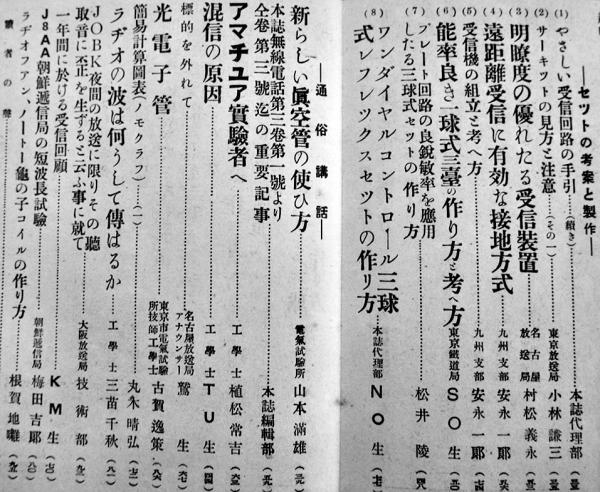 ―セットの考案と製作―
(1) やさしい受信回路の手引(續き) 本誌代理部
(2) サーキットの見方と注意(その一) 東京放送局 小林謙三
(3) 明瞭度の優れたる受信裝置 名古屋放送局 村松義永
(4) 遠距離受信に有効な接地方式 九州支部 安永一郎
(5) 受信機の組立と考へ方 九州支部 安永一郎
(6) 能率良き一球式三臺の作り方と考へ方 東京鐵道局 SO生
(7) プレート回路の良鋭敏率を應用したる三球式セットの作り方 松井陵
(8) ワンダイヤルコントロール三球式レフレックスセットの作り方 本誌代理部 NO生
―通俗講話―
新らしい眞空管の使ひ方 電氣試驗所 山本滿雄
本誌無線電話第三卷第一號より
全卷第三號迄の重要記事 本誌編輯部
アマチユア實驗者へ 工學士 植松常吉
混信の原因 工學士 TU生
標的を外れて 名古屋放送局アナウンサー 鷲生
光電子管 東京市電氣試驗所技師 工學士 古賀逸策
簡易計算圖表(ノモクラフ)(一) 丸朱晴弘
ラヂオの波は何うして傳はるか 工學士 三苗千秋
JOBK夜間の放送に限りその聽
取音に歪正を生ずると云ふ事に就て 大阪放送局 技術部
一年間に於ける受信回顧 KM生
J8AA朝鮮遞信局の短波長試驗 朝鮮遞信局 梅田吉郎
ラヂオフアン、ノートー龜の子コイルの作り方 根賀地囃
讀者の聲